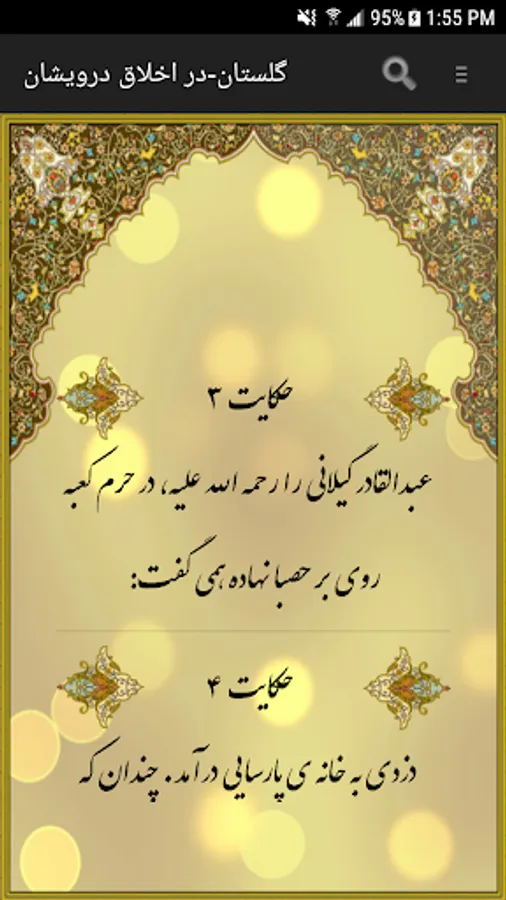 95% 1:55 PM
گلستان-در اخلاق درویشان
حکایت ۳
عبدالقادر گیلانی را رحمه الله علیه، در حرم کعبه
روی بر حصبا نهاده همی گفت:
حکایت ۴
دزدی به خانه ی پارسایی در آمد. چندان که